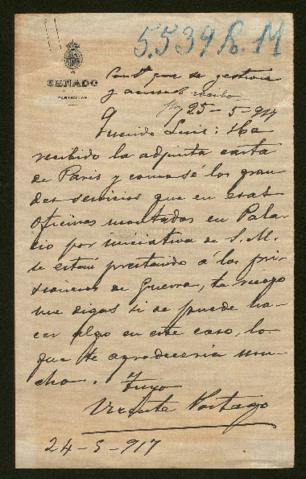 5.539 R. M
SENADO
PARTICULAR
Contº que se gestiona
y acusará recibo
25-5-917
Querido Luis: Ha
recibido la adjunta carta
de Paris y como se los gran
des servicios que en esas
oficinas montadas en Pala
cio por iniciativa de S. M.
se estan prestando a los pri
sioneros de Guerra, te ruego
me digas si se puede ha
cer algo en este caso, lo
que te agradeceria mu
cho. Tuyo
Vicente Portago
24-5-917